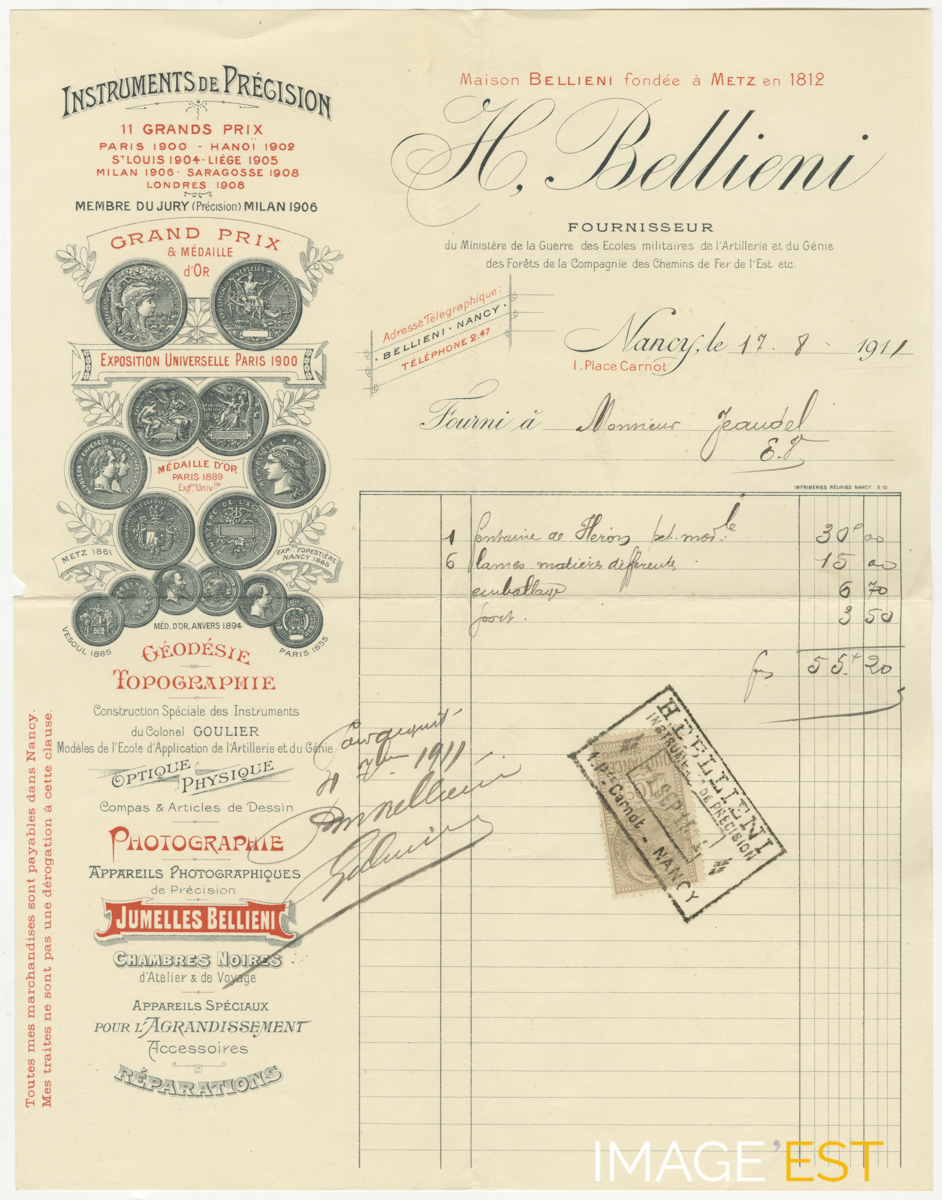 INSTRUMENTS DE PRÉCISION
11 GRANDS PRIX
PARIS 1900 - HANOI 1902
ST LOUIS 1904 - LIÉGE 1905
MILAN 1906 - SARAGOSSE 1908
LONDRES 1908
MEMBRE DU JURY (Précision) MILAN 1906
GRAND PRIX
& MÉDAILLE
d'OR
EXPOSITION UNIVERSELLE PARIS 1900
MÉDAILLE D'OR
PARIS 1889
Expon Univlle
METZ 1861
EXPon FORESTIÈRE
NANCY 1886
MÉD. D'OR, ANVERS 1894
VESOUL 1885
PARIS 1855
GÉODÉSIE
TOPOGRAPHIE
Construction Spéciale des Instruments
du Colonel GOULIER
Modèles de l'Ecole d'Application de l'Artillerie et du Génie
OPTIQUE PHYSIQUE
Compas & Articles de Dessin
PHOTOGRAPHIE
APPAREILS PHOTOGRAPHIQUES
de Précision
JUMELLES BELLIENI
CHAMBRES NOIRES
d'Atelier & de Voyage
APPAREILS SPÉCIAUX
POUR L'AGRANDISSEMENT
Accessoires
RÉPARATIONS
Toutes mes marchandises sont payables dans Nancy.
Mes traites ne sont pas une dérogation à cette clause.
Maison BELLIENI fondée à METZ en 1812
H. Bellieni
FOURNISSEUR
du Ministère de la Guerre des Ecoles militaires de l'Artillerie et du Génie
des Forêts de la Compagnie des Chemins de Fer de l'Est etc.
Adresse Télégraphique:
BELLIENI - NANCY
TÉLÉPHONE 2.47
Nancy, le 17. 8. 1911
1, Place Carnot
Fourni à Monsieur Jeandel
E.V
IMPRIMERIES RÉUNIES NANCY 5-10
1 fontaine de Héron pet. modle 30f 00
6 lames matièrs différents 15 00
emballage 6 70
port. 3 50
frs 55. 20
Pour acquit
7bre 1911
H. BELLIENI
INSTRUMENTS DE PRÉCISION
SEPT
1. Pce Carnot - NANCY
IMAGE'EST